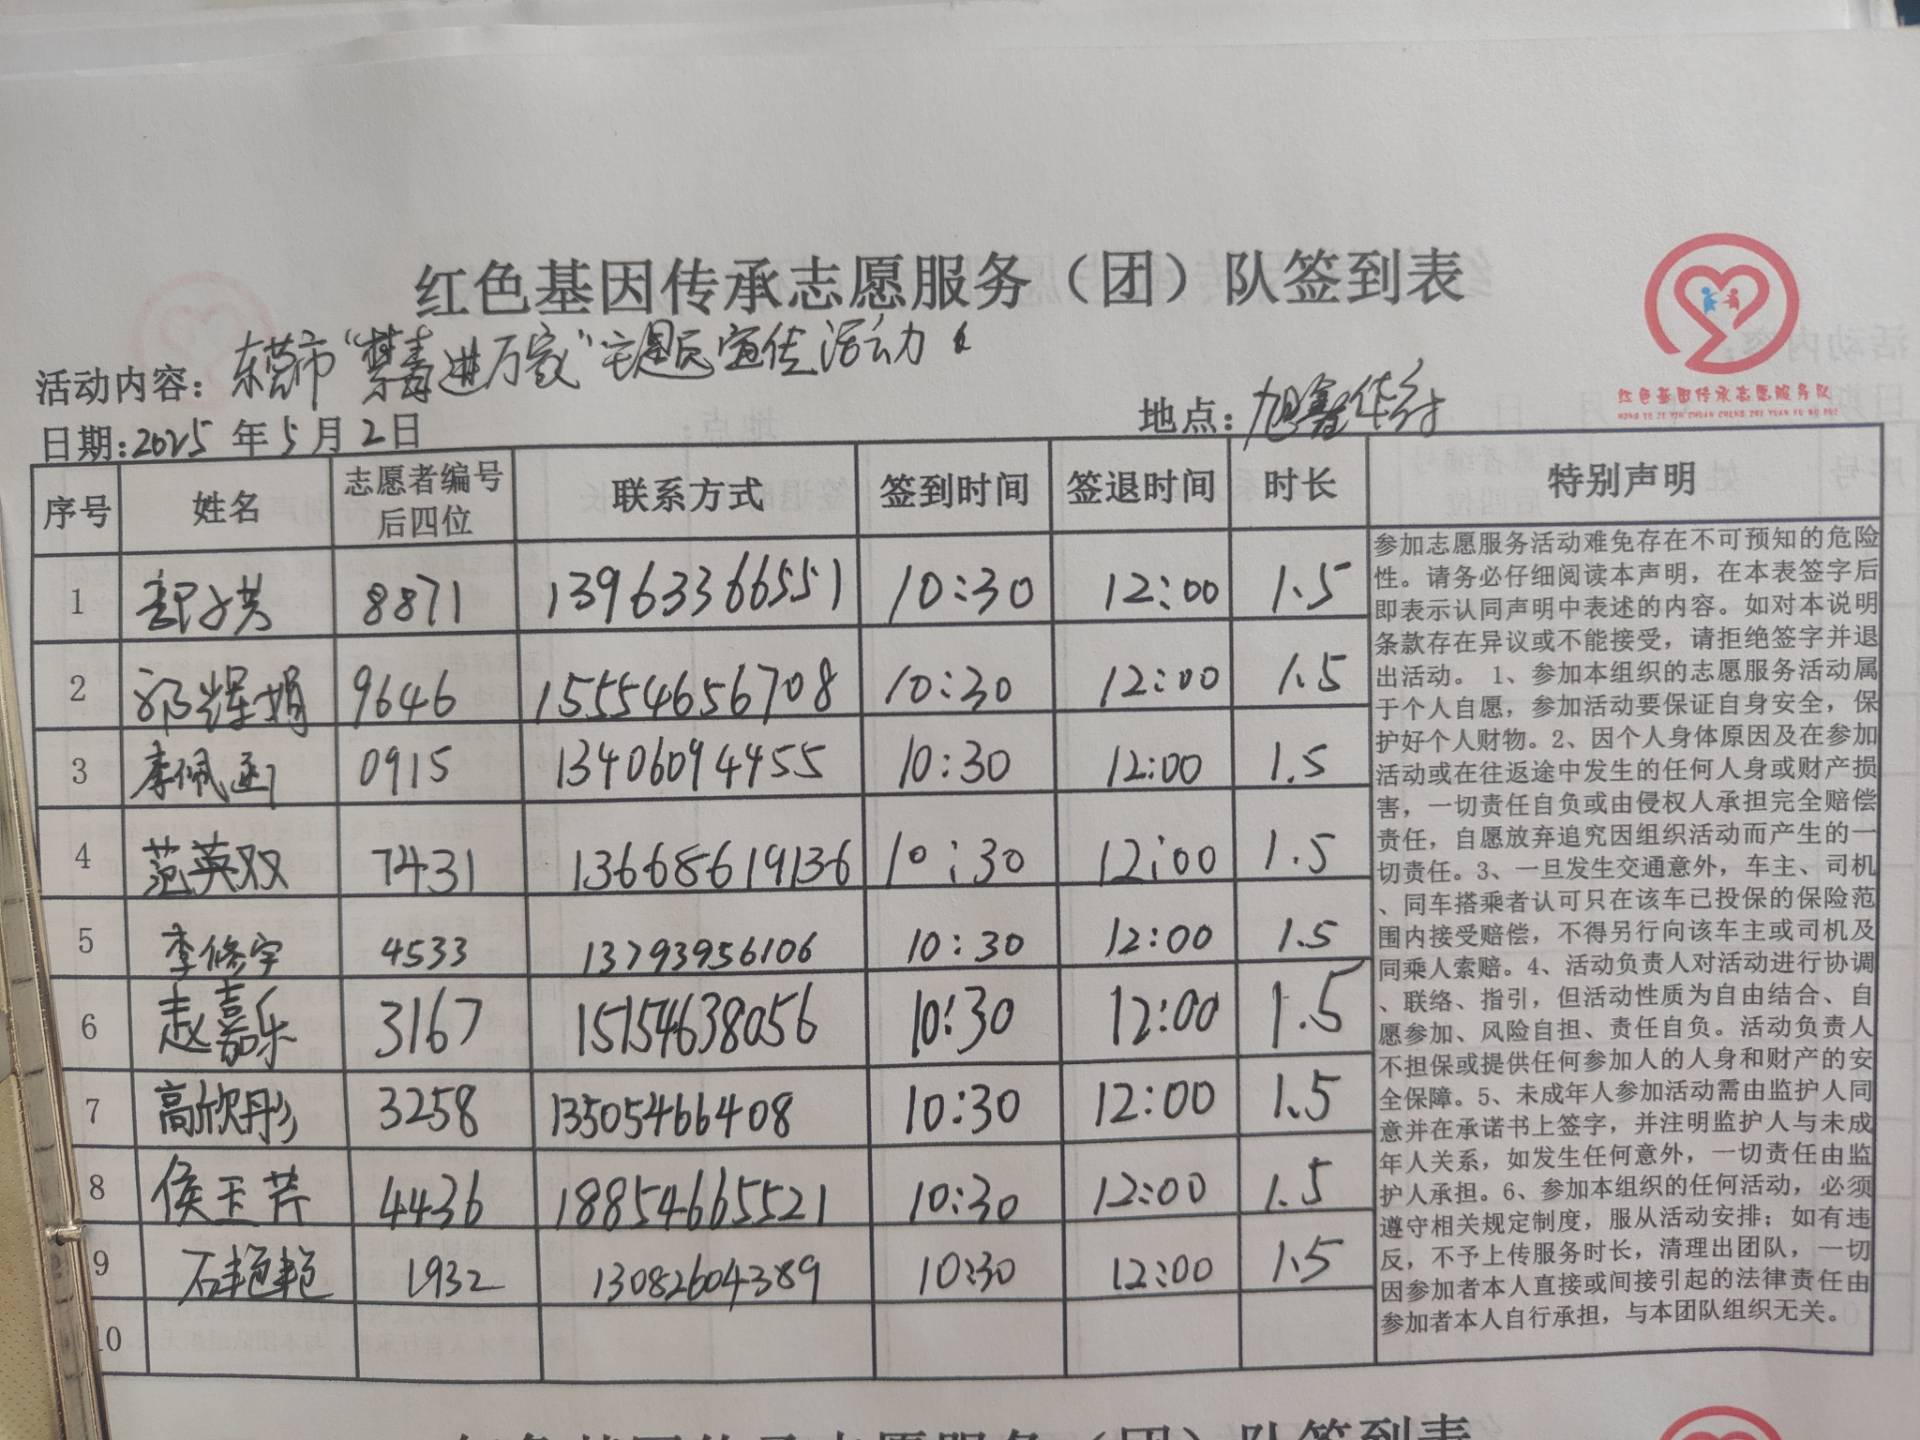 红色基因传承志愿服务（团）队签到表
活动内容：东营市“禁毒进万家”主题宣传活动
红色基因传承志愿服务队
HONG SE JI YIN CHUAN CHENG ZHI YUAN FU WU DUI
日期：2025 年 5 月 2 日 地点：
序号 姓名 志愿者编号后四位 联系方式 签到时间 签退时间 时长 特别声明
1 8871 13963366551 10:30 12:00 1.5
2 邱辉娟 9646 15554656708 10:30 12:00 1.5
3 李佩函 0915 13406094455 10:30 12:00 1.5
4 范英双 7431 13668619136 10:30 12:00 1.5
5 李修宇 4533 13793956106 10:30 12:00 1.5
6 赵嘉乐 3167 15154638056 10:30 12:00 1.5
7 高欣彤 3258 13505466408 10:30 12:00 1.5
8 侯玉芹 4436 18854665521 10:30 12:00 1.5
9 石艳艳 1932 13082604389 10:30 12:00 1.5
10
参加志愿服务活动难免存在不可预知的危险
性。请务必仔细阅读本声明，在本表签字后
即表示认同声明中表述的内容。如对本说明
条款存在异议或不能接受，请拒绝签字并退
出活动。 1、参加本组织的志愿服务活动属
于个人自愿，参加活动要保证自身安全，保
护好个人财物。2、因个人身体原因及在参加
活动或在往返途中发生的任何人身或财产损
害，一切责任自负或由侵权人承担完全赔偿
责任，自愿放弃追究因组织活动而产生的一
切责任。3、一旦发生交通意外，车主、司机
、同车搭乘者认可只在该车已投保的保险范
围内接受赔偿，不得另行向该车主或司机及
同乘人索赔。4、活动负责人对活动进行协调
、联络、指引，但活动性质为自由结合、自
愿参加、风险自担、责任自负。活动负责人
不担保或提供任何参加人的人身和财产的安
全保障。5、未成年人参加活动需由监护人同
意并在承诺书上签字，并注明监护人与未成
年人关系，如发生任何意外，一切责任由监
护人承担。6、参加本组织的任何活动，必须
遵守相关规定制度，服从活动安排；如有违
反，不予上传服务时长，清理出团队，一切
因参加者本人直接或间接引起的法律责任由
参加者本人自行承担，与本团队组织无关。
红色基因传承志愿服务（团）队签到表